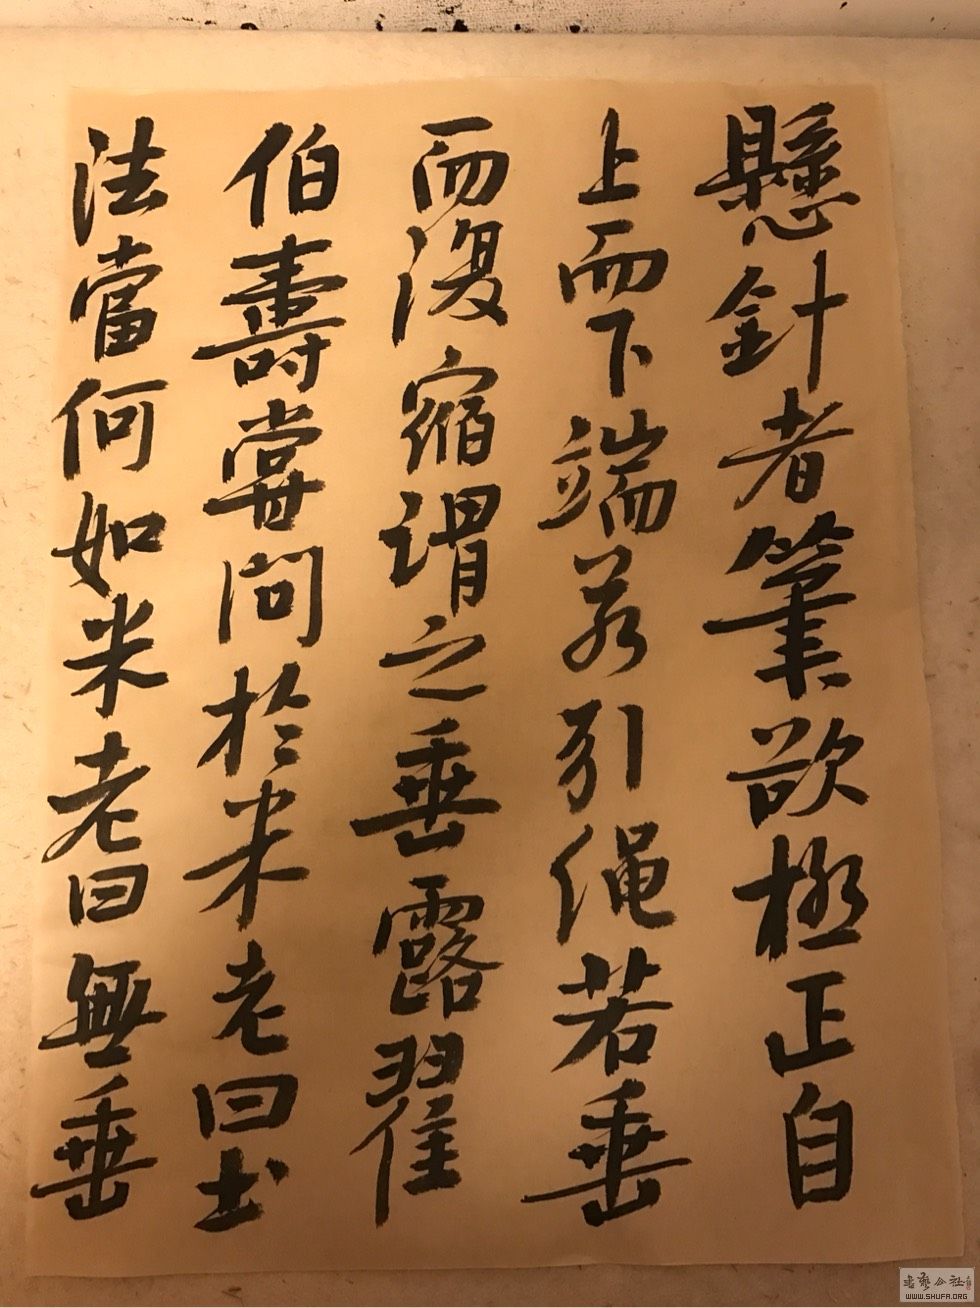 懸針者筆欲極正自
上而下端若引绳若垂
而復縮謂之垂露翟
伯壽嘗問於米老曰书
法當何如米老曰無垂
書藝公社
WWW.SHUFA.ORG